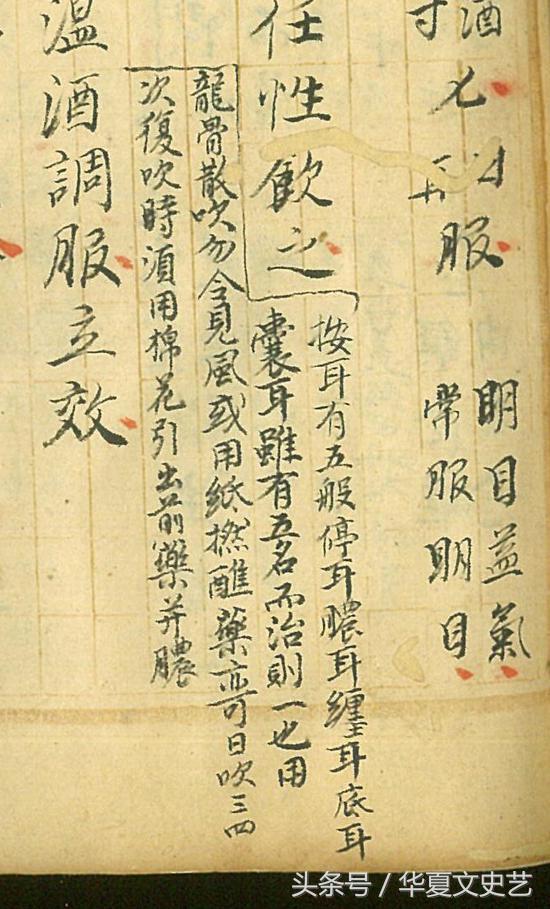 酒
寸
匕日再服
明目益氣
常服明目
任性飲之
按耳有五般停耳膿耳纏耳底耳
囊耳雖有五名而治則一也用
龍骨散吹勿令見風或用紙撚醮藥亦可日吹三四
次復吹時須用棉花引出前藥并膿
溫酒調服立效
头条号 / 华夏文史艺